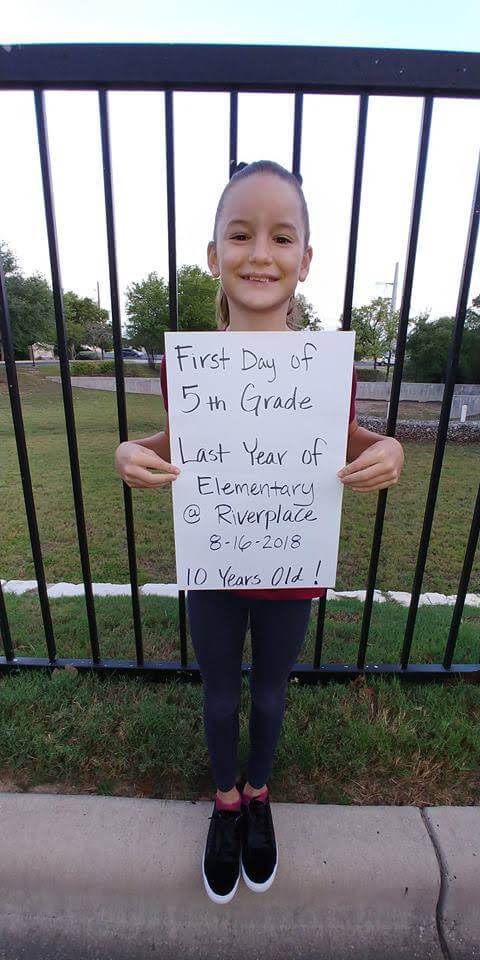 First Day of
5th Grade
Last Year of
Elementary
@ Riverplace
8-16-2018
10 Years Old!